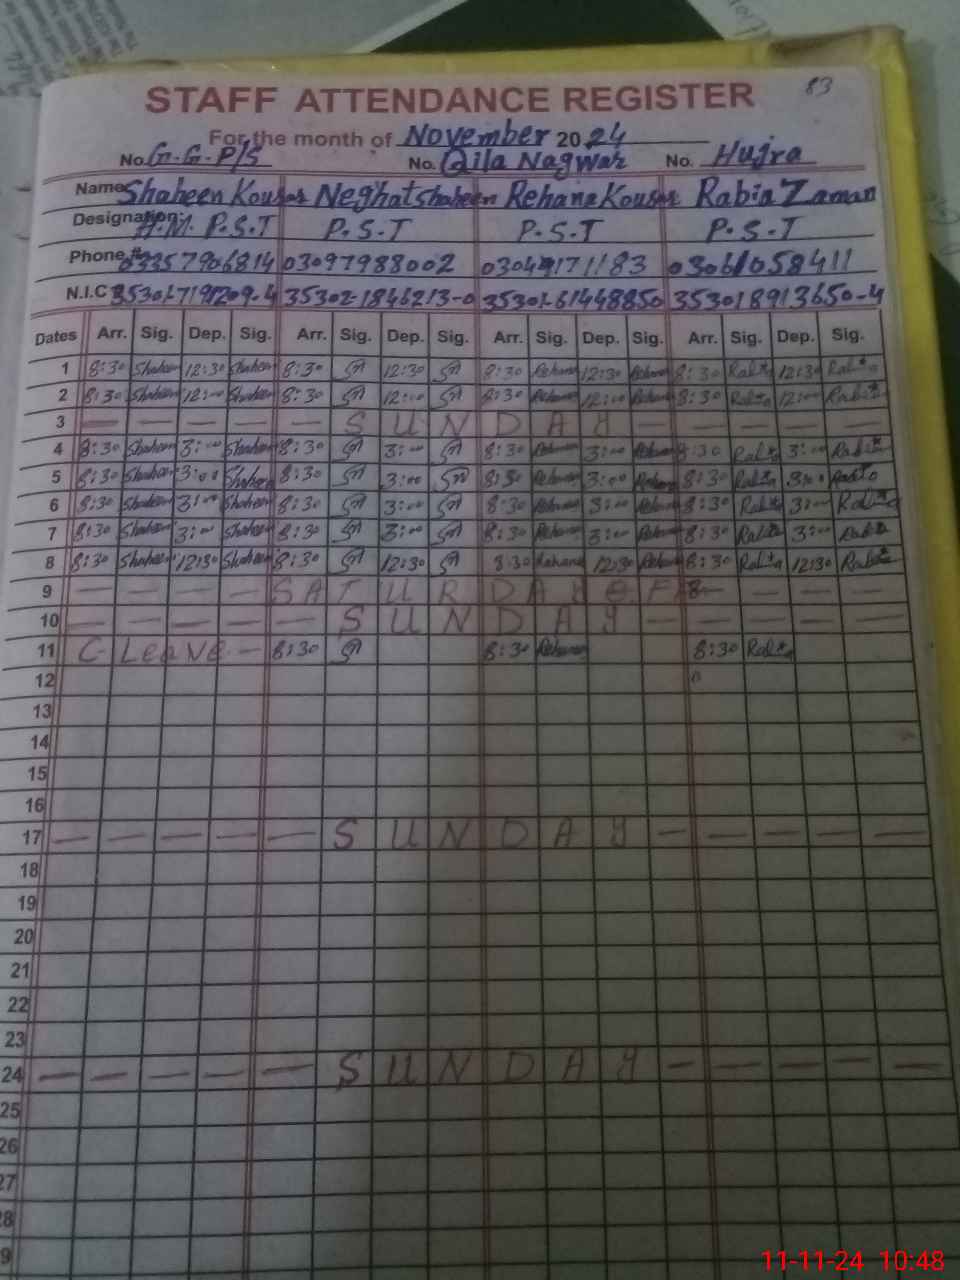 83
STAFF ATTENDANCE REGISTER
For the month of November 2024
No. G.G.P/S No. Qila Nagwah No. Hujra
Name Shaheen Kousar Neghat shaheen Rehana Kousar Rabia Zaman
Designation: H.M. P.S.T P.S.T P.S.T P.S.T
Phone # 03357906814 03097988002 03049171183 03061058411
N.I.C 35302-1846213-0 35301-61448850 353018913650-4
Dates Arr. Sig. Dep. Sig. Arr. Sig. Dep. Sig. Arr. Sig. Dep. Sig. Arr. Sig. Dep. Sig.
1 8:30 Shaheen 12:30 Shaheen 8:30 12:30 8:30 Rehana 12:30 Rehana 8:30 Rabia 12:30 Rabia
2 8:30 Shaheen 12:00 Shaheen 8:30 12:00 8:30 Rehana 12:00 Rehana 8:30 Rabia 12:00 Rabia
3 — — — — — S U N D A Y — — — — —
4 8:30 Shaheen 3:00 Shaheen 8:30 3:00 8:30 Rehana 3:00 Rehana 8:30 Rabia 3:00 Rabia
5 8:30 Shaheen 3:00 Shaheen 8:30 3:00 8:30 Rehana 3:00 Rehana 8:30 Rabia 3:00 Rabia
6 8:30 Shaheen 3:00 Shaheen 8:30 3:00 8:30 Rehana 3:00 Rehana 8:30 Rabia 3:00 Rabia
7 8:30 Shaheen 3:00 Shaheen 8:30 3:00 8:30 Rehana 3:00 Rehana 8:30 Rabia 3:00 Rabia
8 8:30 Shaheen 12:30 Shaheen 8:30 12:30 8:30 Rehana 12:30 Rehana 8:30 Rabia 12:30 Rabia
9 — — — — S A T U R D A Y O.F — — —
10 — — — — — S U N D A Y — — — — —
11 C- Leave — 8:30 8:30 Rehana 8:30 Rabia
12
13
14
15
16
17 — — — — — S U N D A Y — — — — —
18
19
20
21
22
23
24 — — — — — S U N D A Y — — — — —
25
26
27
28
9
11-11-24 10:48